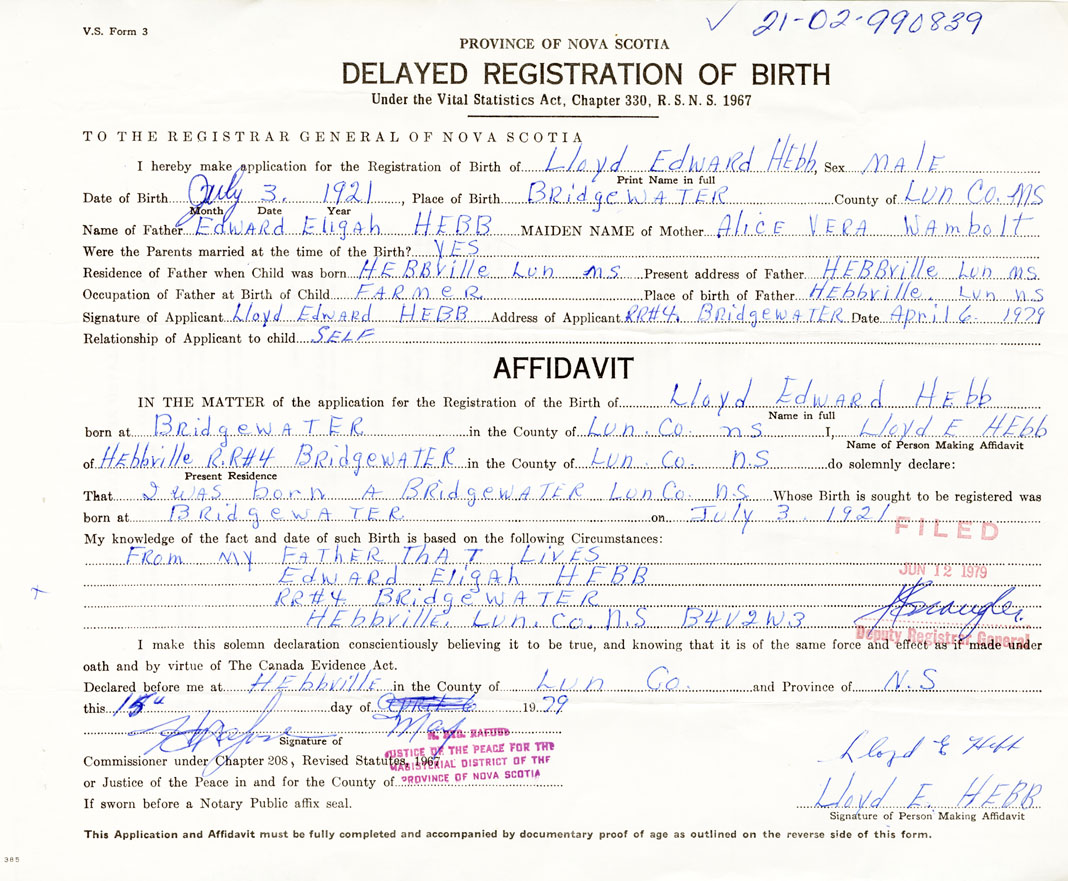 V.S. Form 3
✓ 21-02-990839
PROVINCE OF NOVA SCOTIA
DELAYED REGISTRATION OF BIRTH
Under the Vital Statistics Act, Chapter 330, R.S.N.S. 1967
TO THE REGISTRAR GENERAL OF NOVA SCOTIA
I hereby make application for the Registration of Birth of Lloyd Edward Hebb, Sex MALE
Print Name in full
Date of Birth July 3. 1921, Place of Birth BRidgeWATER County of Lun Co. NS
Month Date Year
Name of Father EdWARd Eligah HEBB MAIDEN NAME of Mother AliCE VERA WAmbolt
Were the Parents married at the time of the Birth? YES
Residence of Father when Child was born HEBBville Lun ns Present address of Father HEBBville Lun ns
Occupation of Father at Birth of Child FARmeR Place of birth of Father Hebbville. Lun ns
Signature of Applicant Lloyd EdWARd HEBB Address of Applicant RR#4. BRidgeWATER Date April 6 1979
Relationship of Applicant to child SELF
AFFIDAVIT
IN THE MATTER of the application for the Registration of the Birth of Lloyd EdWARd HEbb
Name in full
born at BRidgeWATER in the County of Lun. Co. ns I, Lloyd E HEBb
Name of Person Making Affidavit
of HEbbville R.R#4 BRidgeWATER in the County of Lun. Co. N.S do solemnly declare:
Present Residence
That I WAS born A BRidgeWATER Lun Co. n.s. Whose Birth is sought to be registered was
born at BRidgeWATER on July 3. 1921
FILED
My knowledge of the fact and date of such Birth is based on the following Circumstances:
FRom my FATHER THAT LIVES
EdWARd Eligah HEBB
JUN 12 1979
RR#4 BRidgeWATER
HEbbville. Lun. Co. N.S B4V2W3
Deputy Registrar General
I make this solemn declaration conscientiously believing it to be true, and knowing that it is of the same force and effect as if made under
oath and by virtue of The Canada Evidence Act.
Declared before me at HEbbville in the County of Lun Co. and Province of N.S
this 15th day of April 6 May 1979
Signature of
JUSTICE OF THE PEACE FOR THE
MAGISTERIAL DISTRICT OF THE
PROVINCE OF NOVA SCOTIA
Commissioner under Chapter 208, Revised Statutes, 1967
or Justice of the Peace in and for the County of
Lloyd E Hebb
If sworn before a Notary Public affix seal.
Lloyd E. HEBB
Signature of Person Making Affidavit
This Application and Affidavit must be fully completed and accompanied by documentary proof of age as outlined on the reverse side of this form.
385